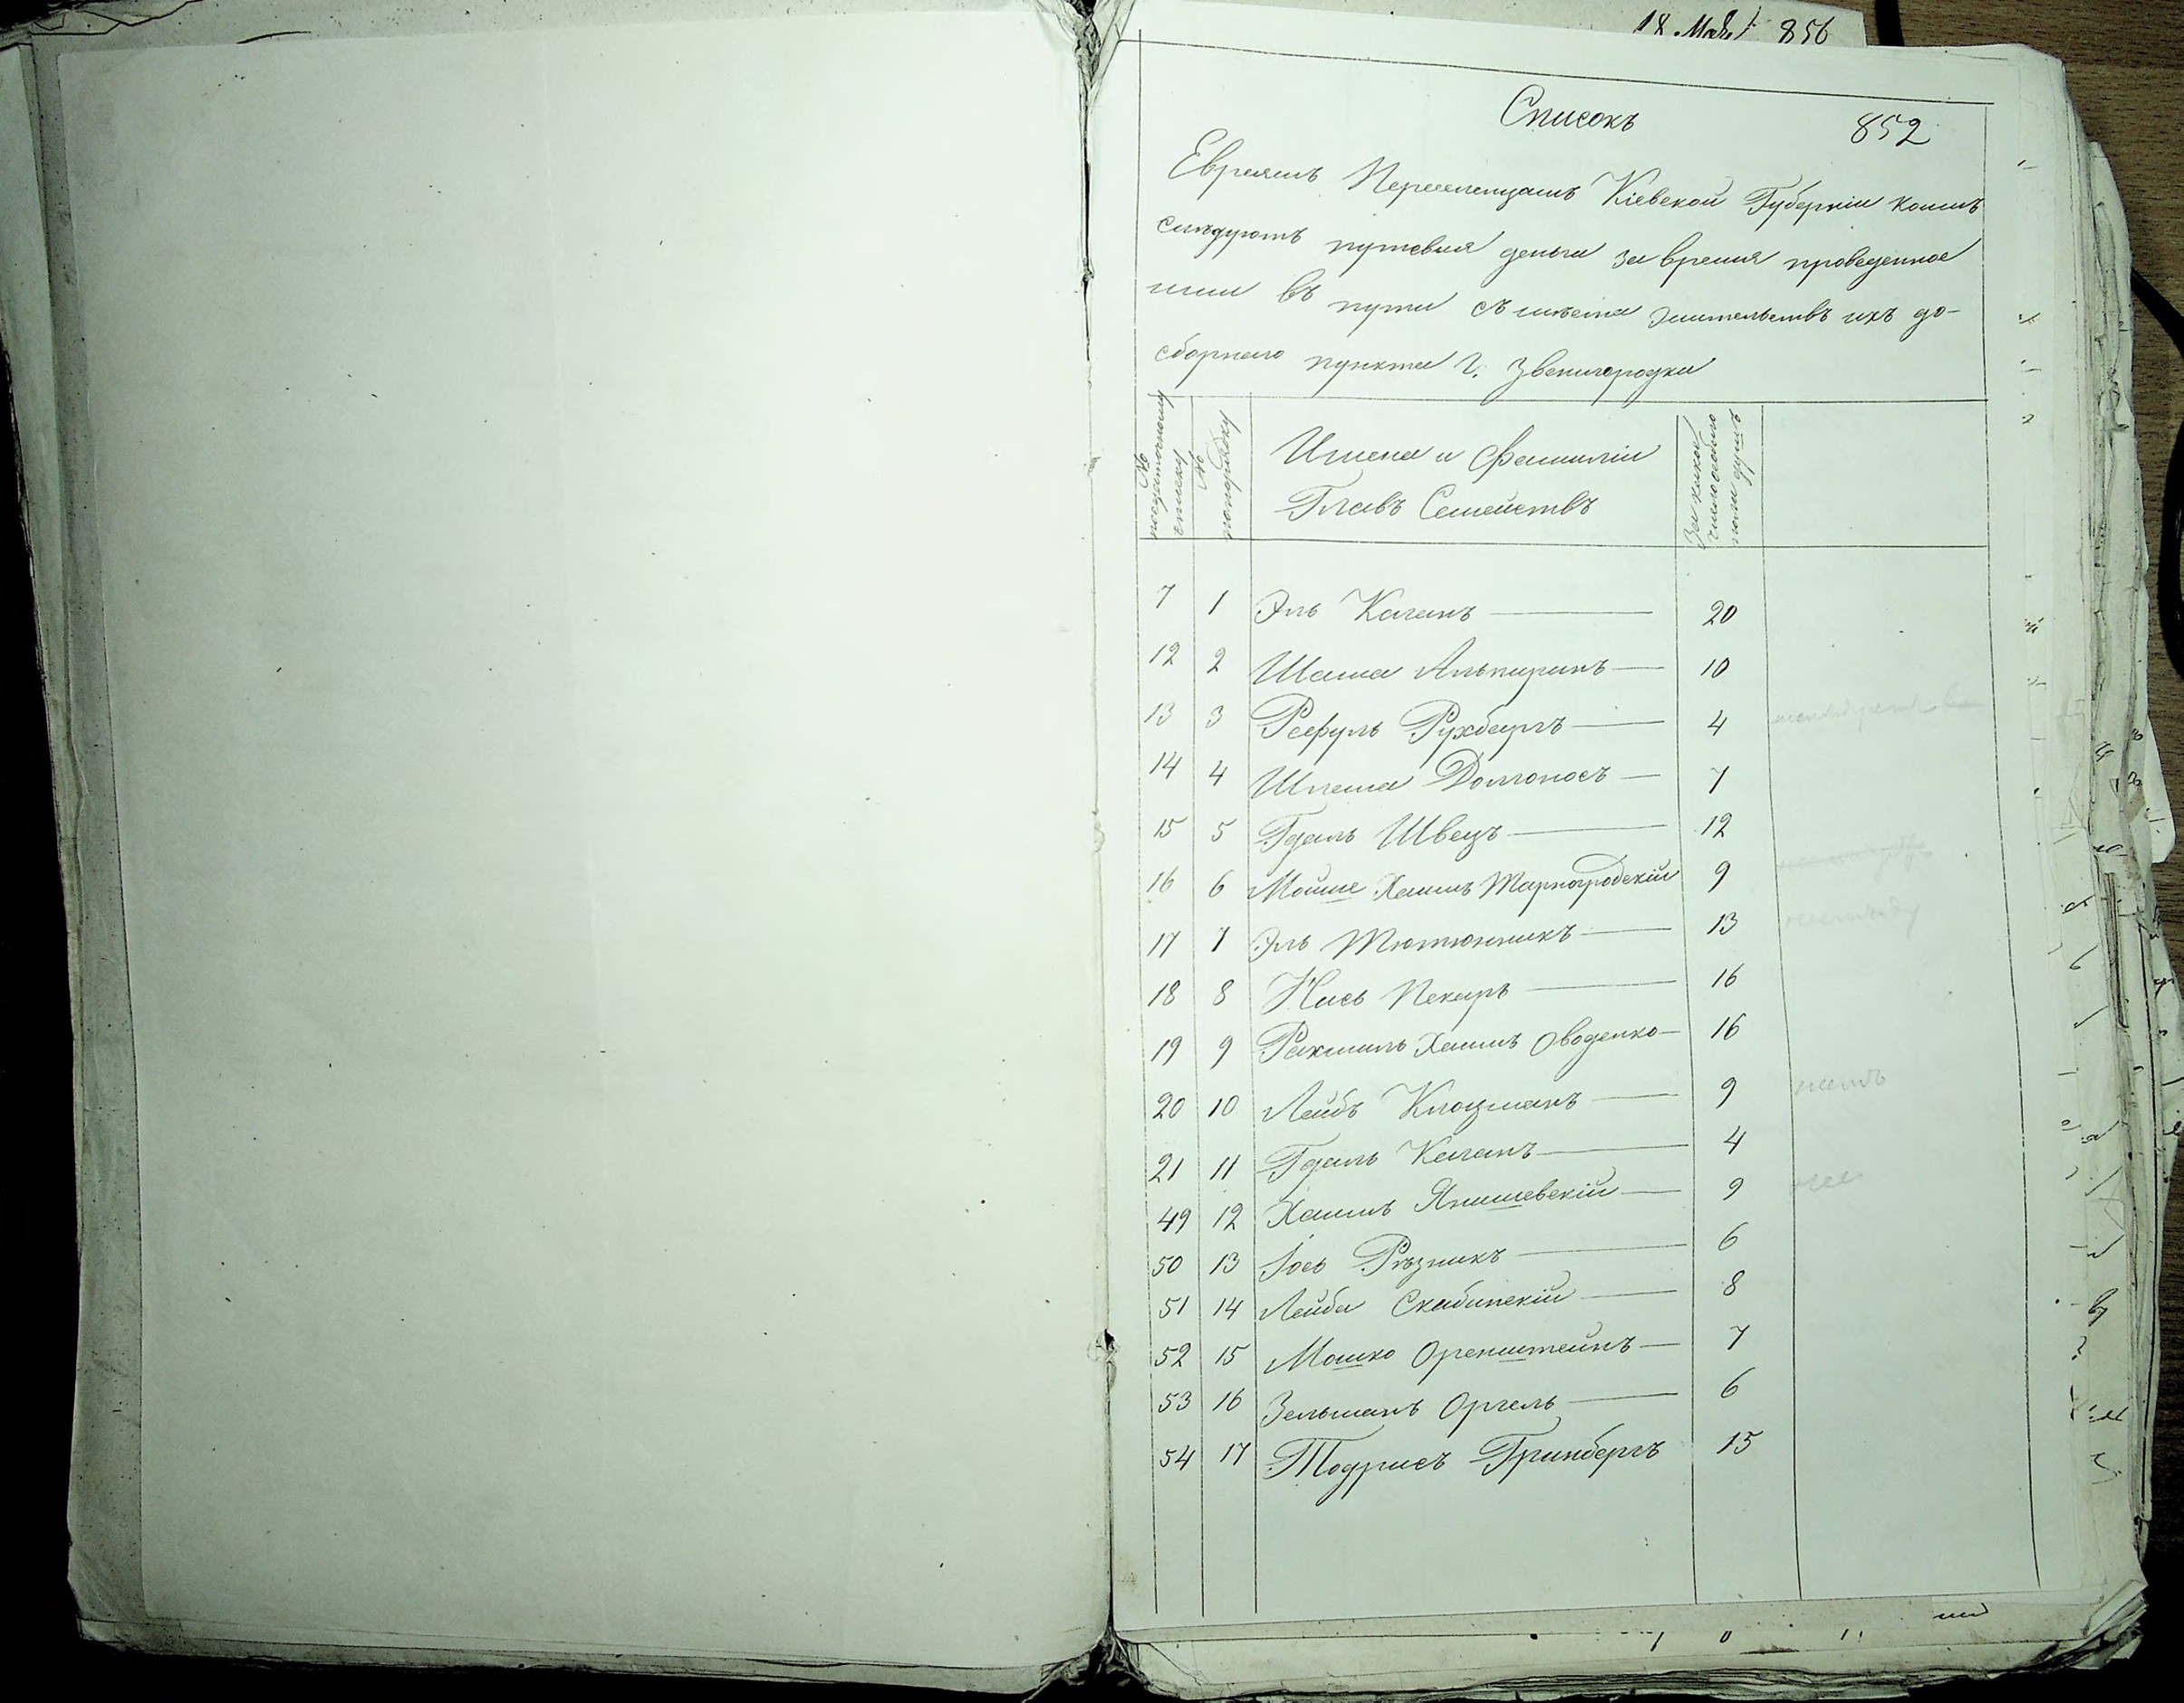 18 Мая 856
Списокъ 852
Евреямъ Переселенцамъ Кіевской Губерніи коимъ
слѣдуютъ путевыя деньги за время проведенное
ими въ пути съ мѣста жительствъ ихъ до-
сборнаго пункта г. Звенигородки
№ посдаточному списку
№ попорядку
Имена и Фамиліи
Главъ Семействъ
За какое число обоего пола душъ
7 1 Эль Каганъ 20
12 2 Шама Альпиринъ 10
13 3 Рефуль Рухбергъ 4
14 4 Шлема Долгоносъ 7
15 5 Гдаль Швецъ 12
16 6 Мойше Хаимъ Тарногродскій 9
17 7 Эль Тютюнникъ 13
18 8 Нись Пекарь 16
19 9 Рахмиль Хаимъ Оводенко 16
20 10 Лейбъ Клоцманъ 9 нетъ
21 11 Гдаль Каганъ 4
49 12 Хаимъ Янишевскій 9
50 13 Іось Рѣзникъ 6
51 14 Лейба Скабинскій 8
52 15 Мошко Оренштейнъ 7
53 16 Зельманъ Оргель 6
54 17 Тодрисъ Гринбергъ 15